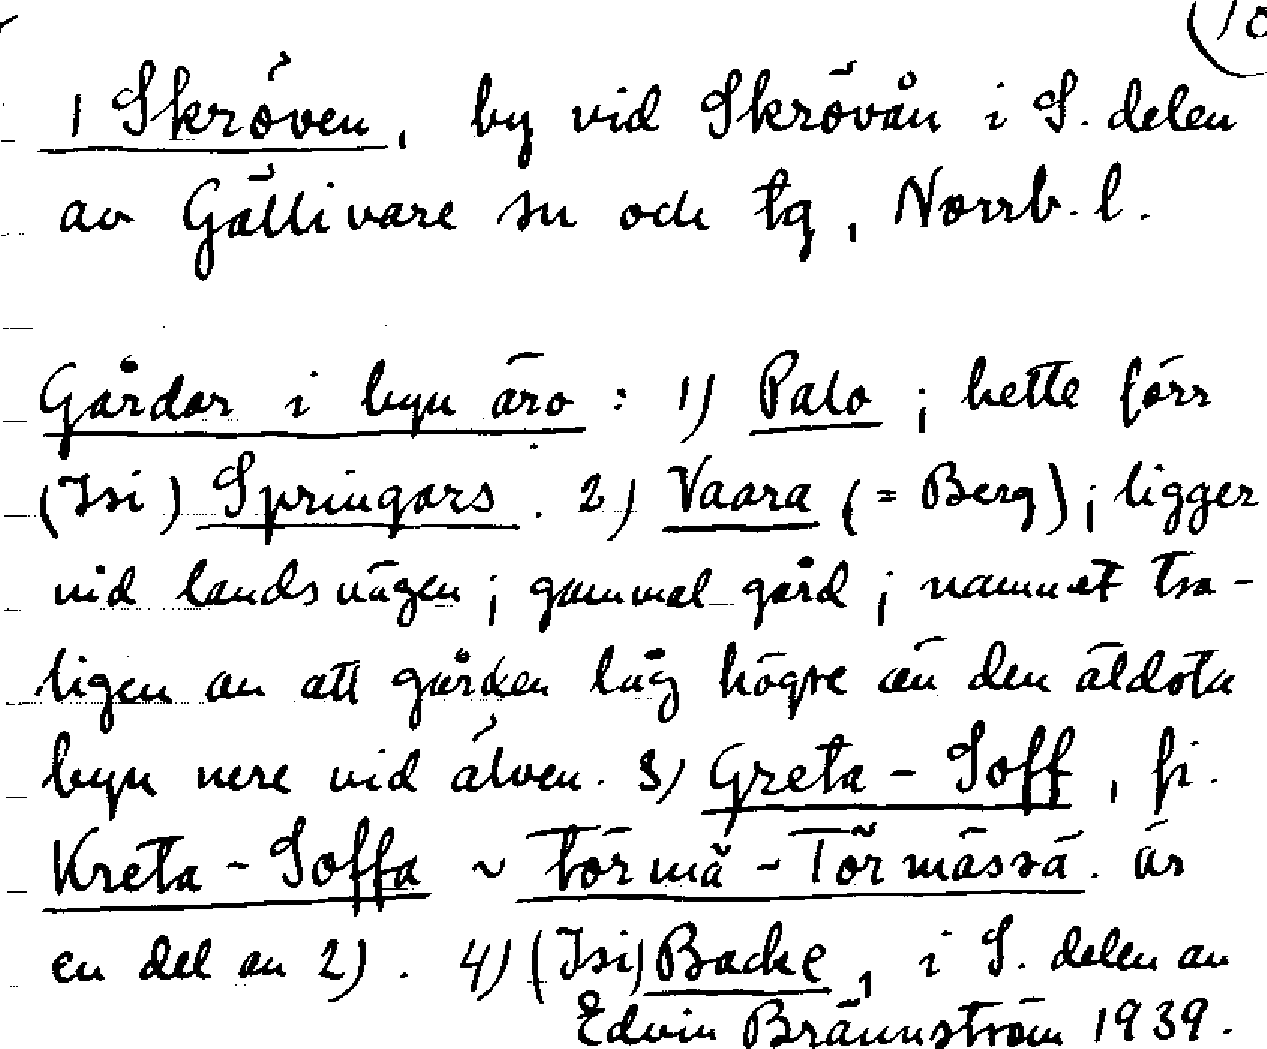 1 Skröven, by vid Skrövån i S. delen
av Gällivare sn och tg, Norrb. l.
Gårdar i byn äro : 1) Palo ; hette förr
(Isi) Springars. 2) Vaara (= Berg) ; ligger
vid landsvägen ; gammal gård ; namnet tro-
ligen av att gården låg högre än den äldsta
byn nere vid älven. 3) Greta - Soff, fi.
Kreta - Soffa ~ Törmä - Törmässä. är
en del av 2). 4) (Isi) Backe, i S. delen av
Edvin Brännström 1939.